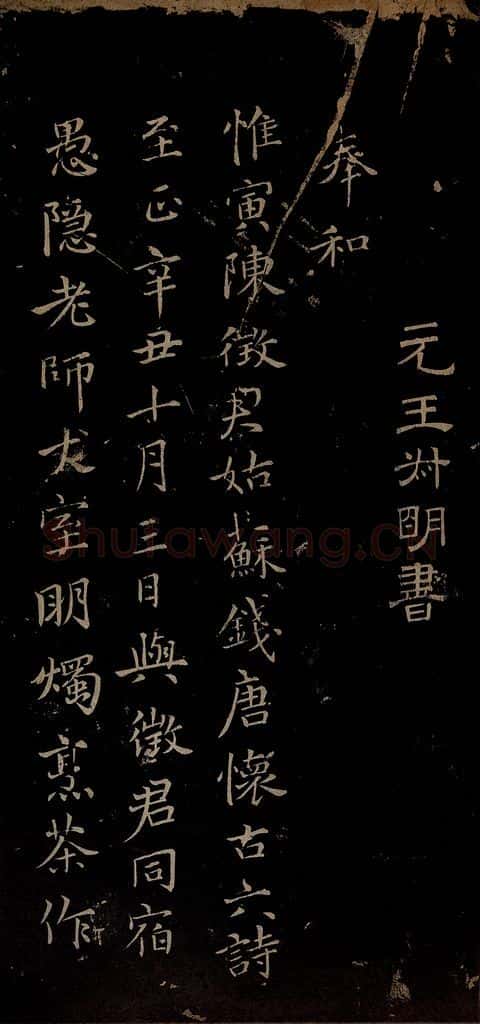 元王叔明書
奉和
惟寅陳徵君姑蘇錢唐懷古六詩
至正辛丑十月三日與徵君同宿
愚隱老師丈室明燭烹茶作
Shufawang.CN